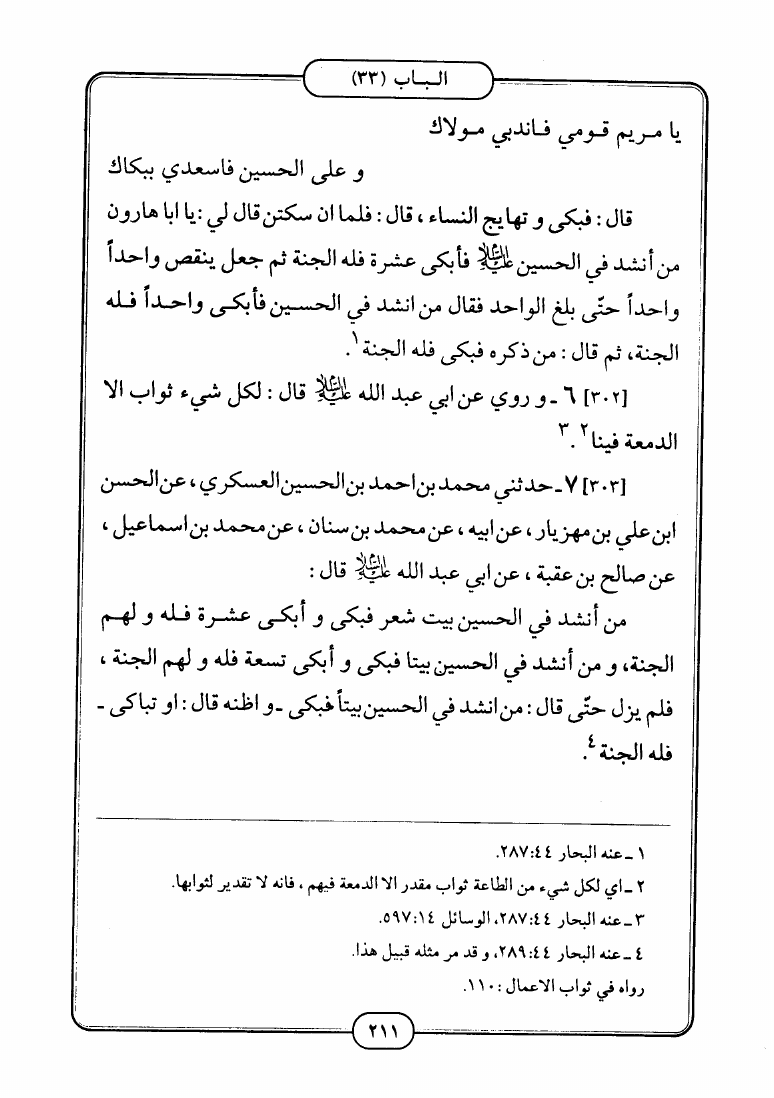 الباب (٣٣)
يا مريم قومي فاندبي مولاك
و على الحسين فاسعدي ببكاك
قال : فبكى و تهايج النساء ، قال : فلما ان سكتن قال لي : يا ابا هارون
من أنشد في الحسين عليه السلام فأبكى عشرة فله الجنة ثم جعل ينقص واحداً
واحداً حتّى بلغ الواحد فقال من انشد في الحسين فأبكى واحداً فله
الجنة، ثم قال : من ذكره فبكى فله الجنة ١.
[٣٠٢] ٦ ـ و روي عن ابي عبد الله عليه السلام قال : لكل شيء ثواب الا
الدمعة فينا ٢ . ٣
[٣٠٣] ٧ ـ حدثني محمد بن احمد بن الحسين العسكري ، عن الحسن
ابن علي بن مهزيار ، عن ابيه ، عن محمد بن سنان ، عن محمد بن اسماعيل ،
عن صالح بن عقبة ، عن ابي عبد الله عليه السلام قال :
من أنشد في الحسين بيت شعر فبكى و أبكى عشرة فله و لهم
الجنة، و من أنشد في الحسين بيتا فبكى و أبكى تسعة فله و لهم الجنة ،
فلم يزل حتّى قال : من انشد في الحسين بيتاً فبكى ـ و اظنه قال : او تباكى ـ
فله الجنة ٤.
١ ـ عنه البحار ٤٤ :٢٨٧.
٢ ـ اي لكل شيء من الطاعة ثواب مقدر الا الدمعة فيهم ، فانه لا تقدير لثوابها.
٣ ـ عنه البحار ٤٤ :٢٨٧، الوسائل ١٤ :٥٩٧.
٤ ـ عنه البحار ٤٤ :٢٨٩، و قد مر مثله قبيل هذا.
رواه في ثواب الاعمال : ١١٠.
٢١١